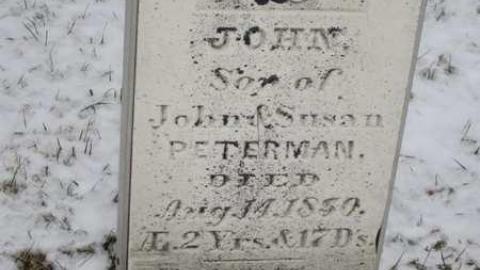 JOHN.
Son of
John & Susan
PETERMAN.
DIED
Aug. 14, 1850.
Æ. 2 Yrs. & 17 Ds.